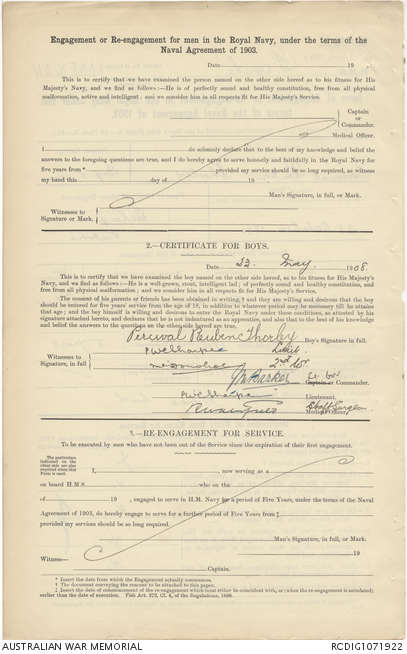 Engagement or Re-engagement for men in the Royal Navy, under the terms of the
Naval Agreement of 1903.
Date 19
This is to certify that we have examined the person named on the other side hereof as to his fitness for His
Majesty's Navy, and we find as follows:—He is of perfectly sound and healthy constitution, free from all physical
malformation, active and intelligent; and we consider him in all respects fit for His Majesty's Service.
Captain
or
Commander.
Medical Officer.
I do solemnly declare that to the best of my knowledge and belief the
answers to the foregoing questions are true, and I do hereby agree to serve honestly and faithfully in the Royal Navy for
five years from * provided my service should be so long required, as witness
my hand this day of 19
Man's Signature, in full, or Mark.
Witnesses to
Signature or Mark.
2.—CERTIFICATE FOR BOYS.
Date 22. May. 1908
This is to certify that we have examined the boy named on the other side hereof, as to his fitness for His Majesty's
Navy, and we find as follows:—He is a well-grown, stout, intelligent lad; of perfectly sound and healthy constitution, and
free from all physical malformation; and we consider him in all respects fit for His Majesty's Service.
The consent of his parents or friends has been obtained in writing,† and they are willing and desirous that the boy
should be entered for five years' service from the age of 18, in addition to whatever period may be necessary till he attains
that age; and the boy himself is willing and desirous to enter the Royal Navy under these conditions, as attested by his
signature attached hereto, and declares that he is not indentured as an apprentice, and also that to the best of his knowledge
and belief the answers to the questions on the other side hereof, are true.
Percival Reuben Thorley Boy's Signature in full.
Witnesses to
Signature, in full
Lieut
Captain or Commander.
Lieutenant.
Staff Surgeon
Medical Officer.
3.—RE-ENGAGEMENT FOR SERVICE.
To be executed by men who have not been out of the Service since the expiration of their first engagement.
The particulars
indicated on the
other side are also
required when this
Form is used.
I, now serving as a
on board H.M.S. who on the
of 19 , engaged to serve in H.M. Navy for a period of Five Years, under the terms of the Naval
Agreement of 1903, do hereby engage to serve for a further period of Five Years from ‡
provided my services should be so long required.
Man's Signature, in full, or Mark.
19
Witness—
Captain.
* Insert the date from which the Engagement actually commences.
† The document conveying the consent to be attached to this paper.
‡ Insert the date of commencement of the re-engagement which must either be coincident with, or (when the re-engagement is antedated)
earlier than the date of execution.
AUSTRALIAN WAR MEMORIAL
RCDIG1071922